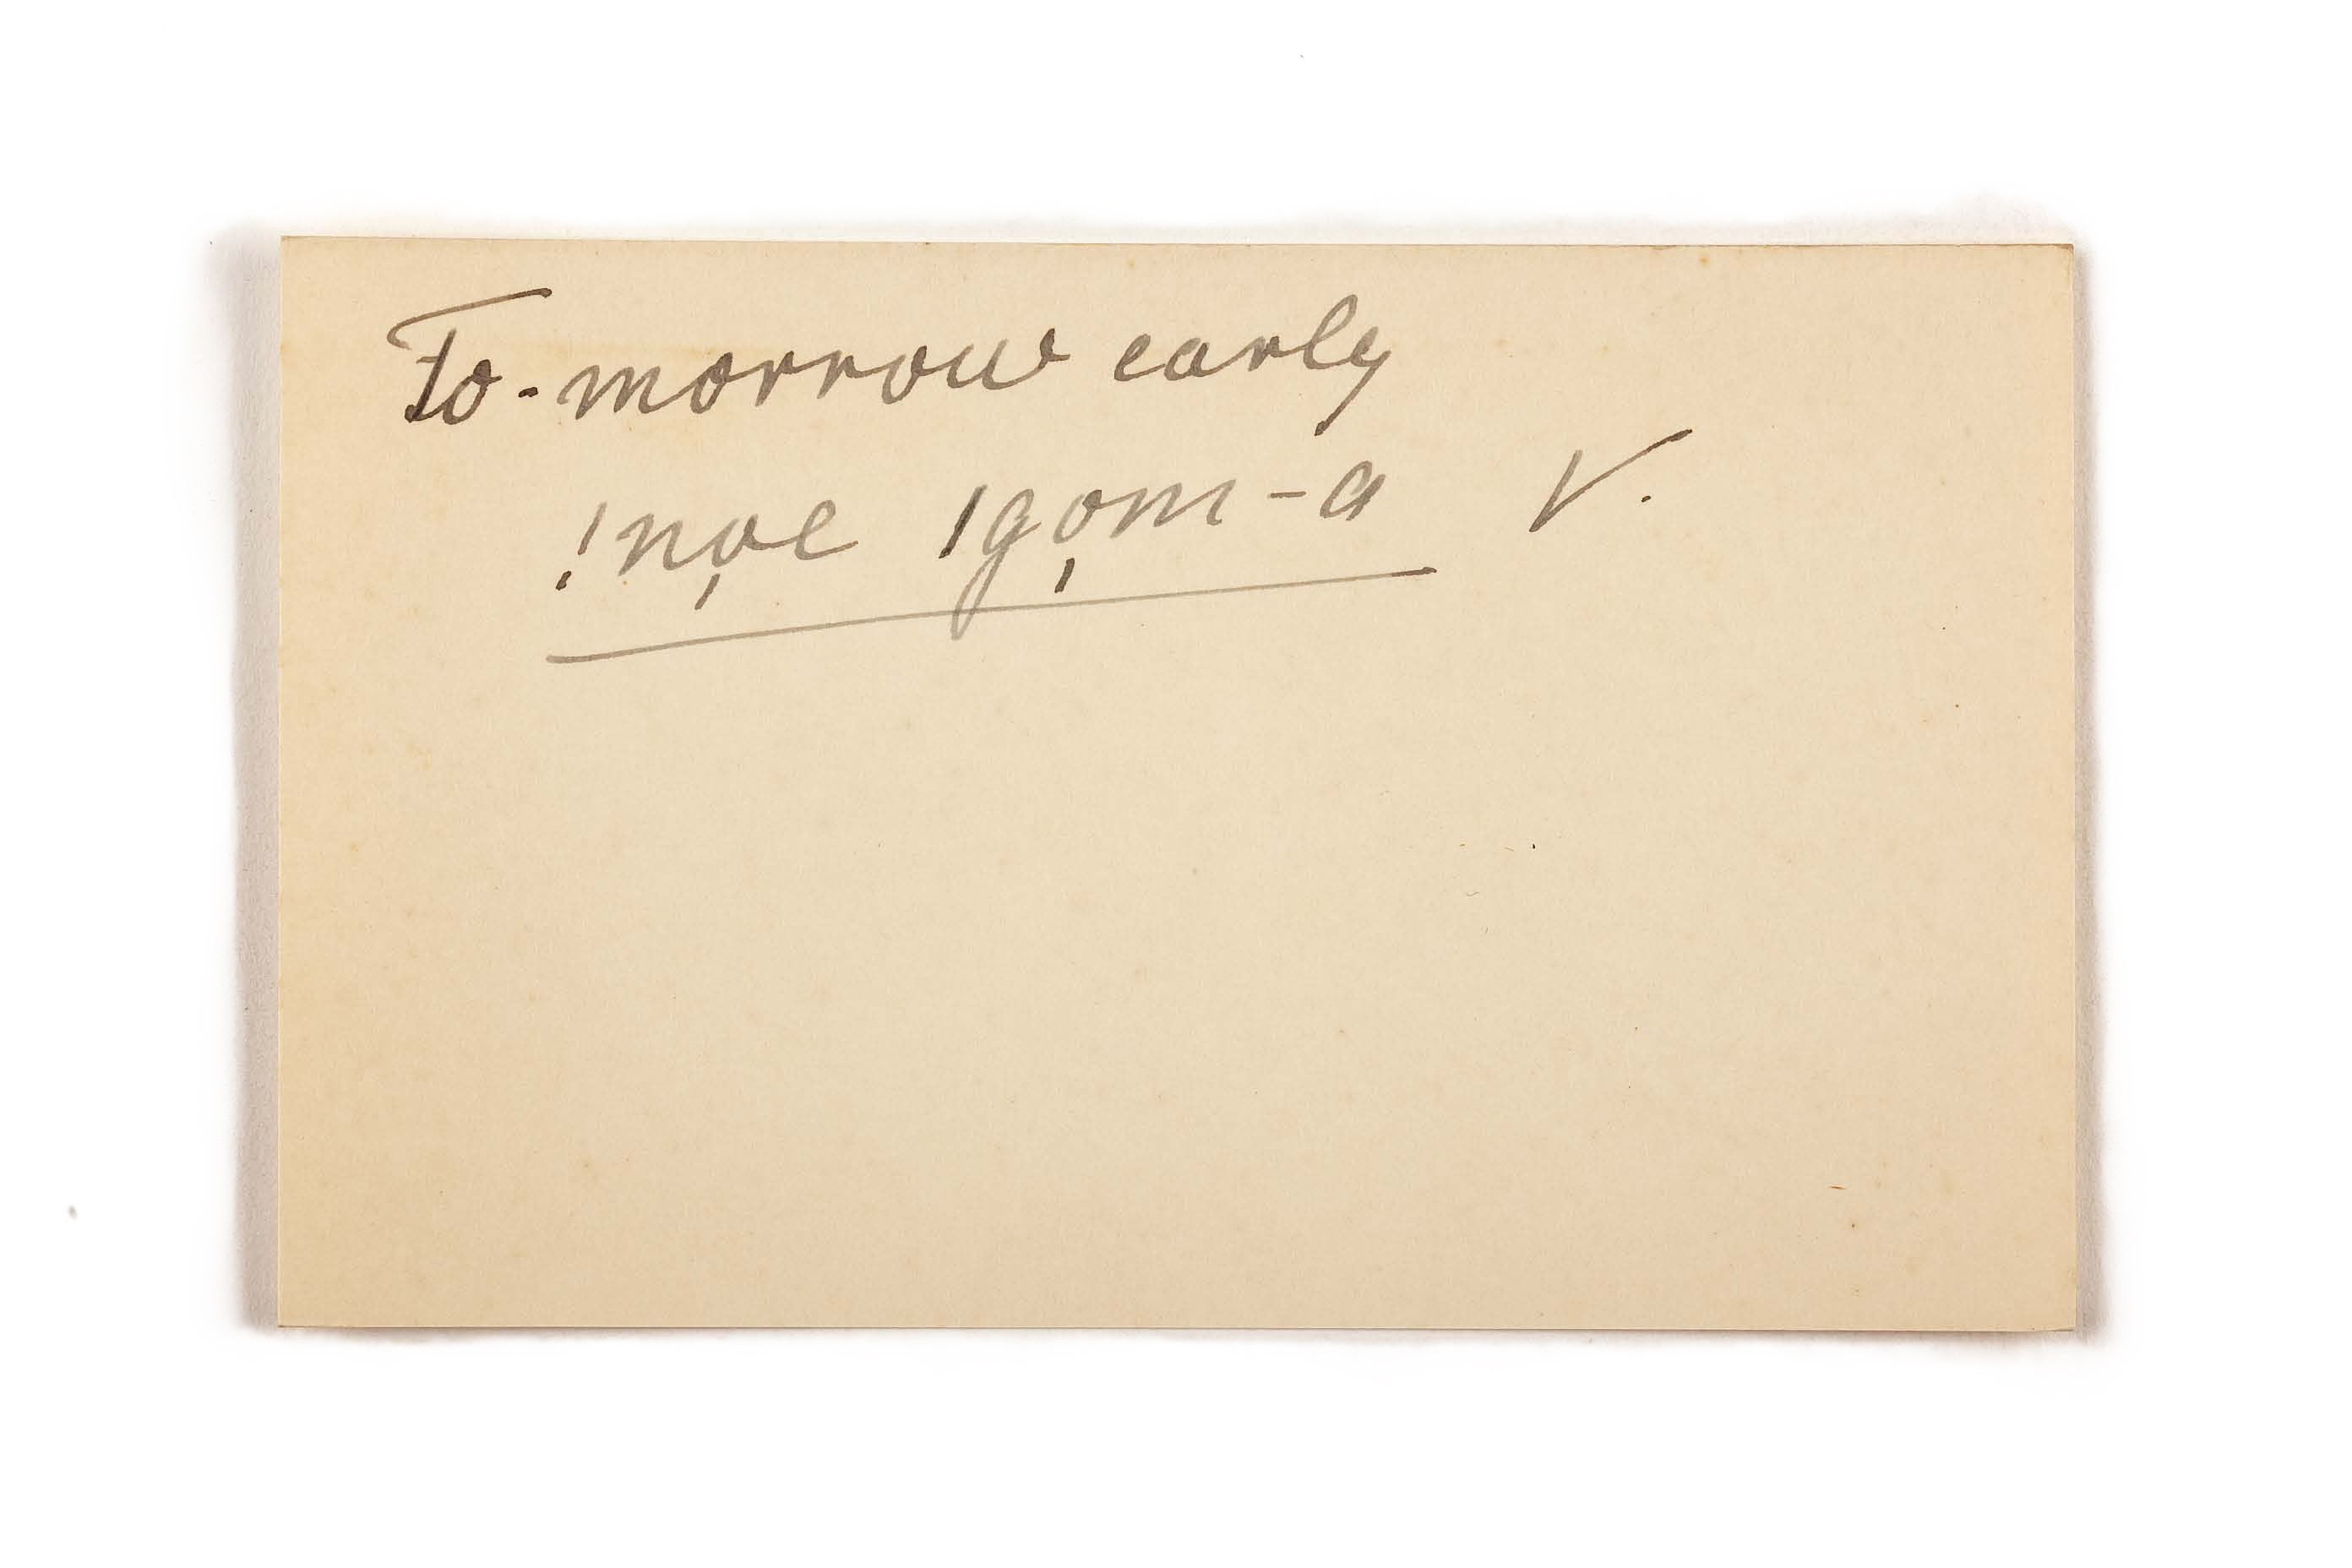 To-morrow early
!no̩e ǀgo̩m-a V.